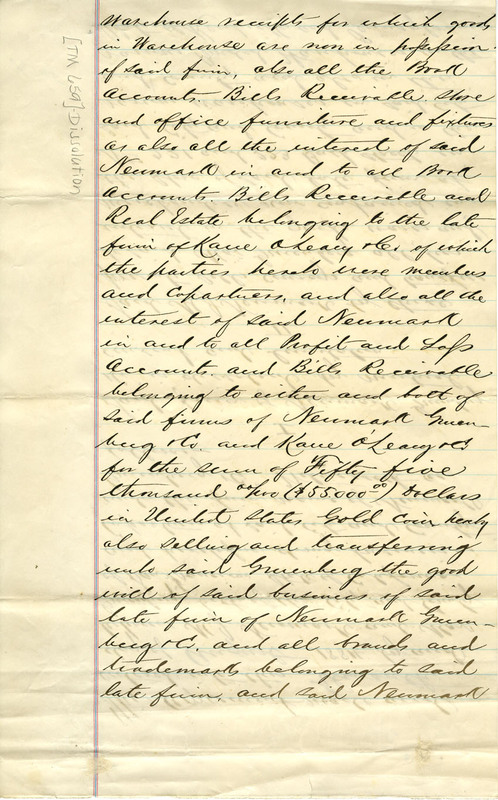 [TM LEG] Dissolution
Warehouse receipts for which goods
in Warehouse are now in possession
of said firm, also all the Book
Accounts. Bills Receivable. store
and office furniture and fixtures
as also all the interest of said
Neumark in and to all Book
Accounts. Bills Receivable and
Real Estate belonging to the late
firm of Kane O'Leary & Co. of which
the parties hereto were members
and Copartners, and also all the
interest of said Neumark
in and to all Profit and Loss
Accounts and Bills Receivable
belonging to either and both of
said firms of Neumark Gruen-
berg & Co. and Kane O'Leary & Co
for the sum of Fifty five
thousand 00/100 ($55000.00) Dollars
in United States Gold coin hereby
also selling and transferring
unto said Gruenberg the good
will of said business of said
late firm of Neumark Gruen-
berg & Co. and all brands and
trademarks belonging to said
late firm, and said Neumark